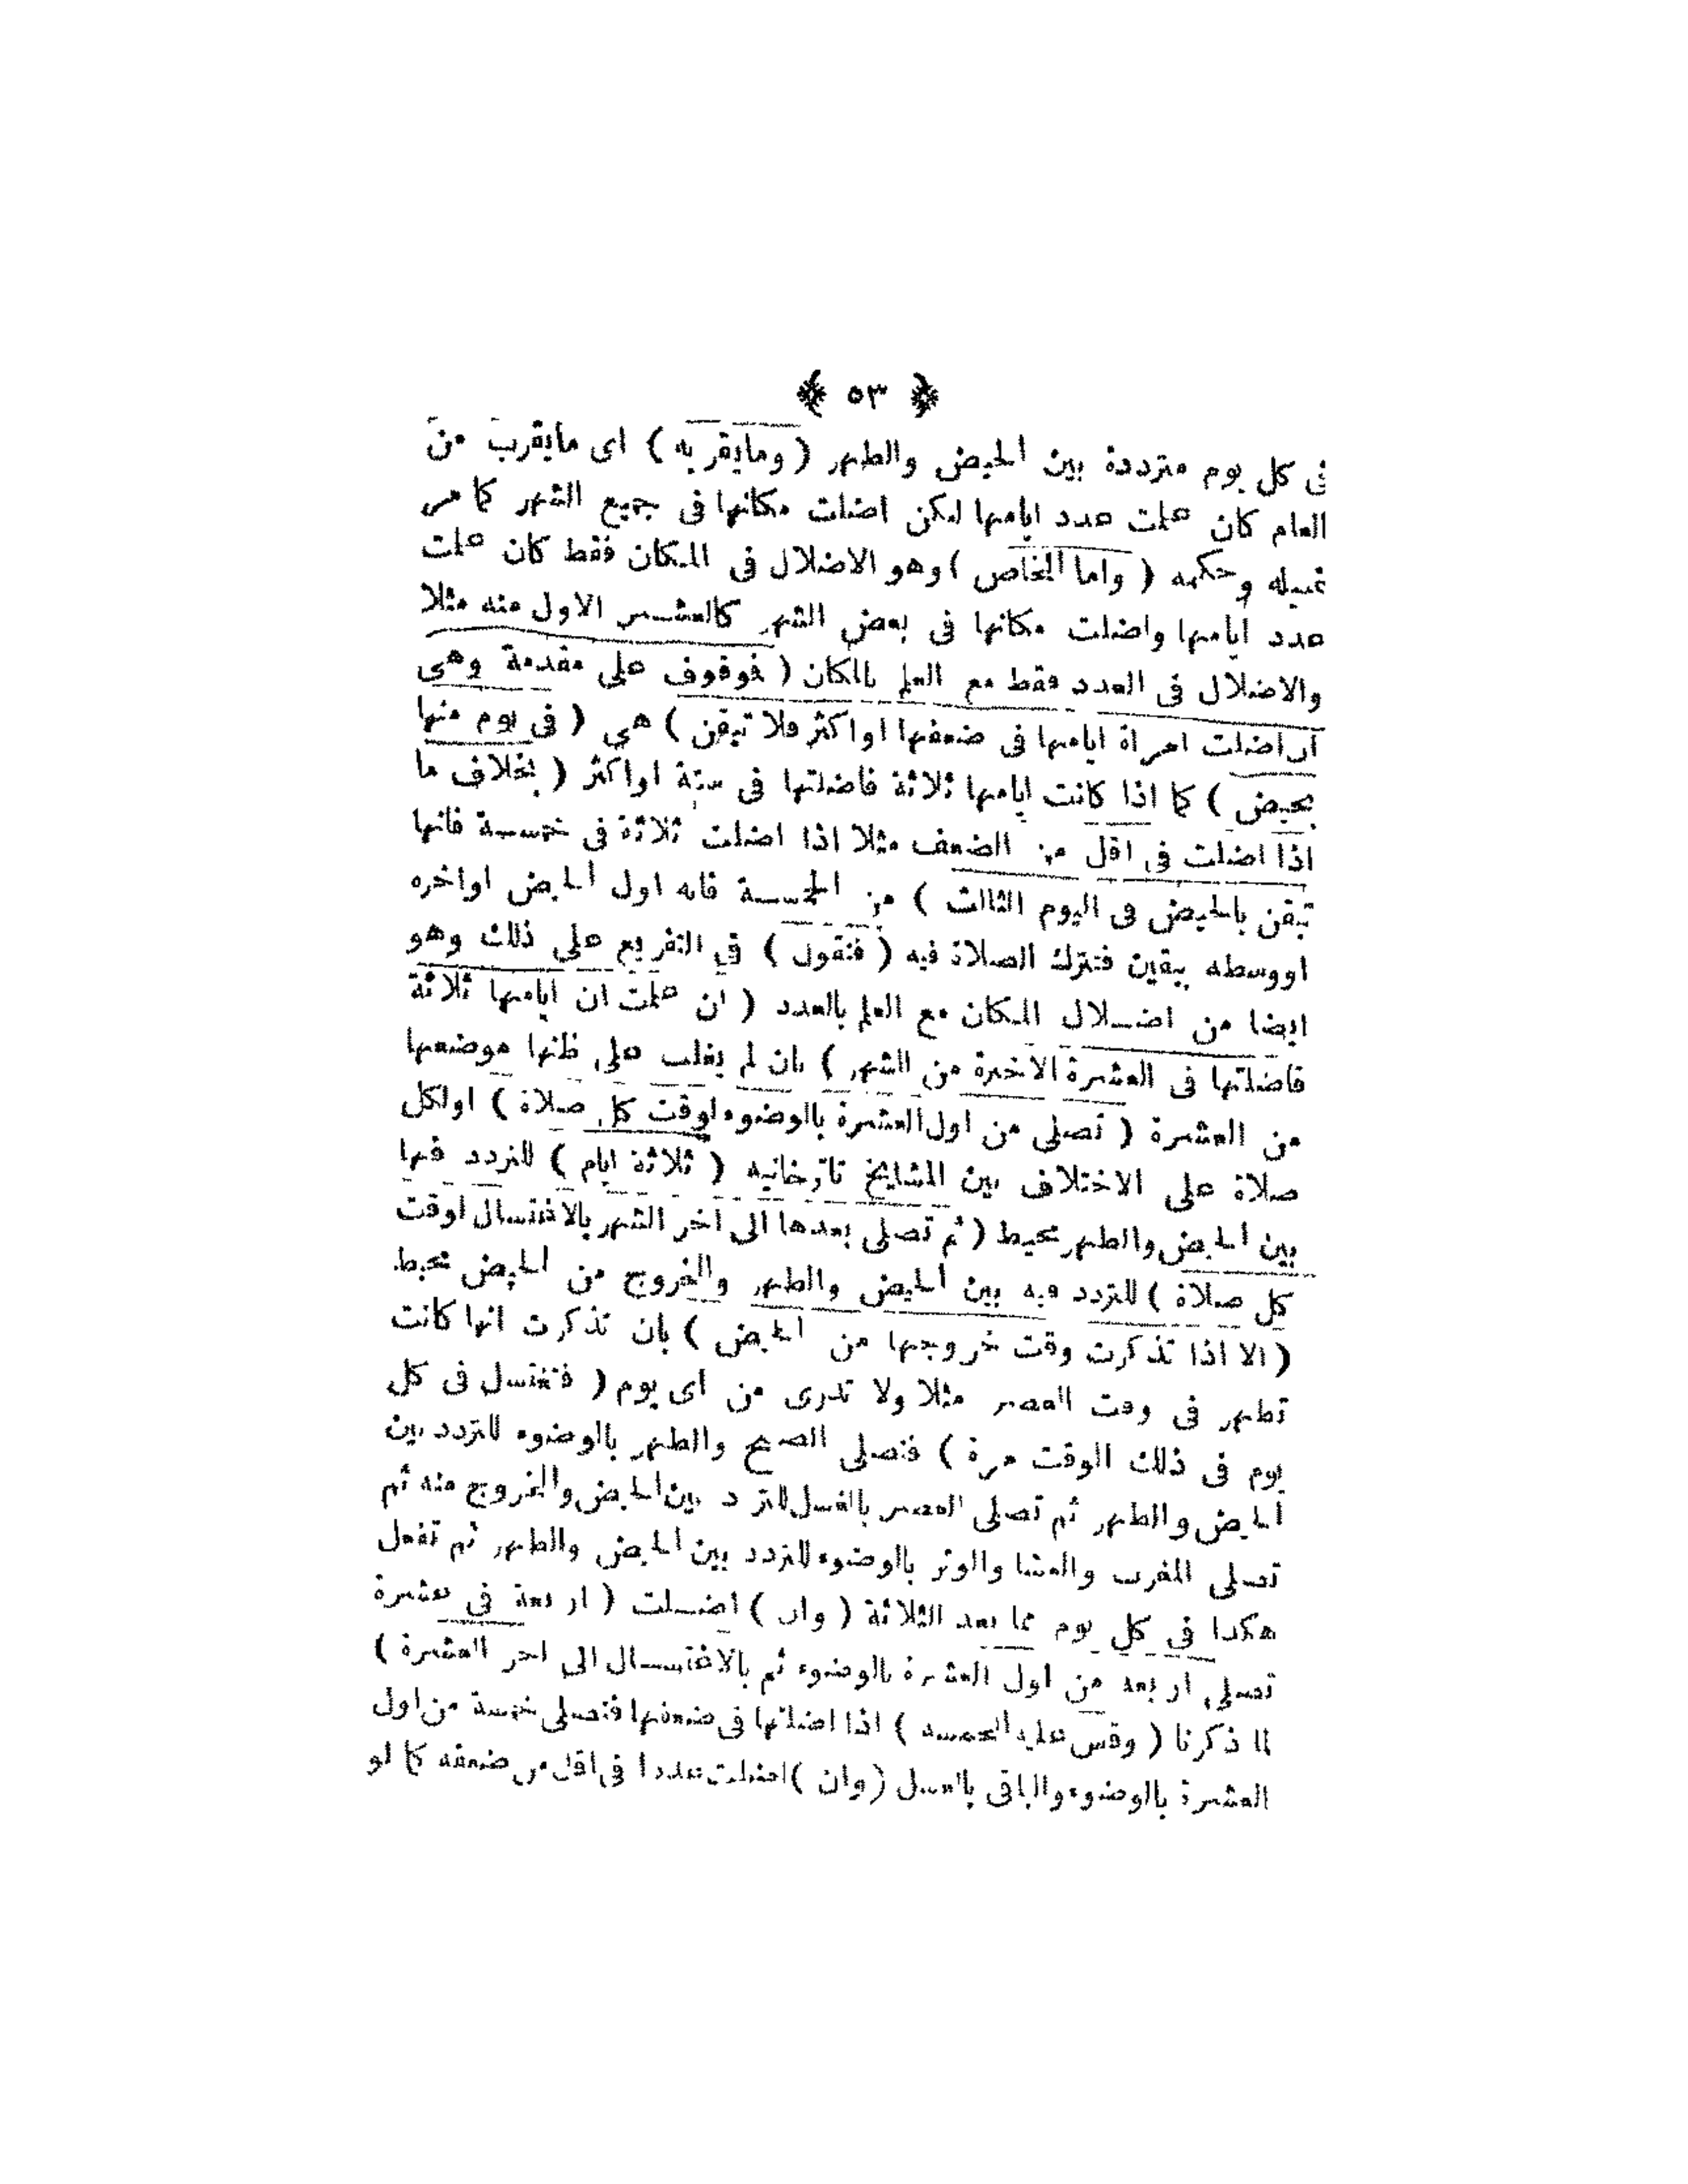 ﴿ ٥٣ ﴾
فى كل يوم مترددة بين الحيض والطهر ( ومايقر به ) اى مايقرب من
العام كان علمت عدد ايامها لكن اضلت مكانها فى جميع الشهر كما مر
تمثيله وحكمه ( واما الخاص ) وهو الاضلال فى المكان فقط كان علمت
عدد ايامها واضلت مكانها فى بعض الشهر كالعشر الاول منه مثلا
والاضلال فى العدد فقط مع العلم بالمكان ( فموقوف على مقدمة وهى
ان اضلت امرأة ايامها فى ضعفها او اكثر فلا تيقن ) هى ( فى يوم منها
بحيض ) كما اذا كانت ايامها ثلاثة فاضلتها فى ستة او اكثر ( بخلاف ما
اذا اضلت فى اقل من الضعف مثلا اذا اضلت ثلاثة فى خمسة فانها
تيقن بالحيض فى اليوم الثالث ) من الخمسة فانه اول الحيض او اخره
او وسطه بيقين فتترك الصلاة فيه ( فنقول ) فى التفريع على ذلك وهو
ايضا من اضلال المكان مع العلم بالعدد ( ان علمت ان ايامها ثلاثة
فاضلتها فى العشرة الاخيرة من الشهر ) بان لم يغلب على ظنها موضعها
من العشرة ( تصلى من اول العشرة بالوضوء لوقت كل صلاة ) او لكل
صلاة على الاختلاف بين المشايخ تاترخانيه ( ثلاثة ايام ) للتردد فيها
بين الحيض والطهر محيط ( ثم تصلى بعدها الى اخر الشهر بالاغتسال لوقت
كل صلاة ) للتردد فيه بين الحيض والطهر والخروج من الحيض محيط
( الا اذا تذكرت وقت خروجها من الحيض ) بان تذكرت انها كانت
تطهر فى وقت العصر مثلا ولا تدرى من اى يوم ( فتغتسل فى كل
يوم فى ذلك الوقت مرة ) فتصلى الصبح والظهر بالوضوء للتردد بين
الحيض والطهر ثم تصلى العصر بالغسل للتردد بين الحيض والخروج منه ثم
تصلى المغرب والعشا والوتر بالوضوء للتردد بين الحيض والطهر ثم تفعل
هكذا فى كل يوم مما بعد الثلاثة ( وان ) اضلت ( اربعة فى عشرة
تصلى اربعة من اول العشرة بالوضوء ثم بالاغتسال الى اخر العشرة )
لما ذكرنا ( وقس عليه الخمسه ) اذا اضلتها فى ضعفها فتصلى خمسة من اول
العشرة بالوضوء والباقى بالغسل ( وان ) اضلت عددا فى اقل من ضعفه كما لو